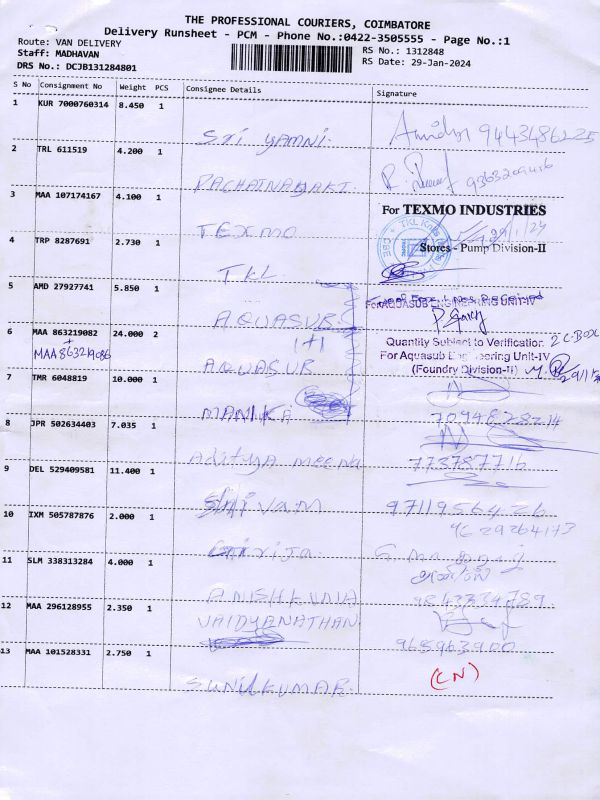 THE PROFESSIONAL COURIERS, COIMBATORE
Delivery Runsheet - PCM - Phone No.:0422-3505555 - Page No.:1
Route: VAN DELIVERY
Staff: MADHAVAN
DRS No.: DCJB131284801
RS No.: 1312848
RS Date: 29-Jan-2024
S No Consignment No Weight PCS Consignee Details Signature
1 KUR 7000760314 8.450 1
Sri YAMNI. 9443486225
2 TRL 611519 4.200 1
PACHAINAYAKI. 9363209416
3 MAA 107174167 4.100 1
For TEXMO INDUSTRIES
TEXMO 29/1/24
4 TRP 8287691 2.730 1
Stores - Pump Division-II
TKL
5 AMD 27927741 5.850 1
For AQUASUB ENGINEERING UNIT-IV
AQUASUB
6 MAA 863219082 24.000 2
1+1
+
MAA 863219086
Quantity Subject to Verification 2 C-BOX
For Aquasub Engineering Unit-IV
AQUASUB
(Foundry Division-II)
7 TMR 6048819 10.000 1
MANIKA 7094828214
8 JPR 502634403 7.035 1
Aditya meena 773787716
9 DEL 529409581 11.400 1
Shivam 9711956426
10 IXM 505787876 2.000 1
9629264173
Girija
11 SLM 338313284 4.000 1
ANISHKUMA 9843334789
12 MAA 296128955 2.350 1
VAIDYANATHAN
965963900
13 MAA 101528331 2.750 1
SUNILKUMAR. (CN)